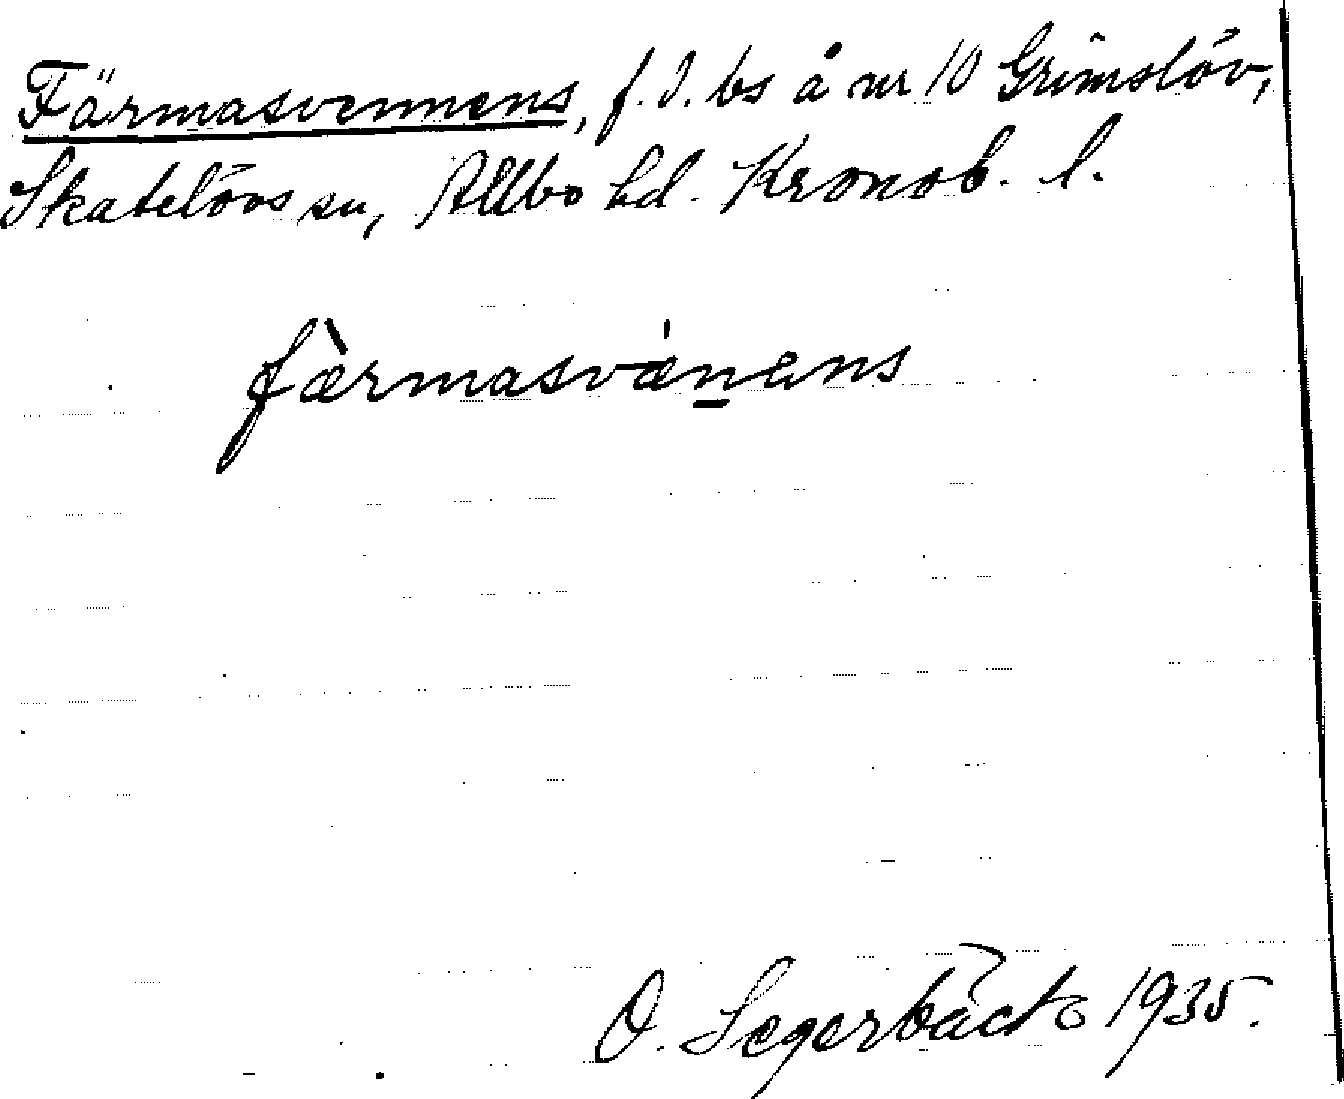 Färmasvennens, f.d. bs å nr 10 Grimslöv,
Skatelövs sn, Allbo hd. Kronob. l.
fæ̀rmasvǽn̲ens
O. Segerbäck 1935.